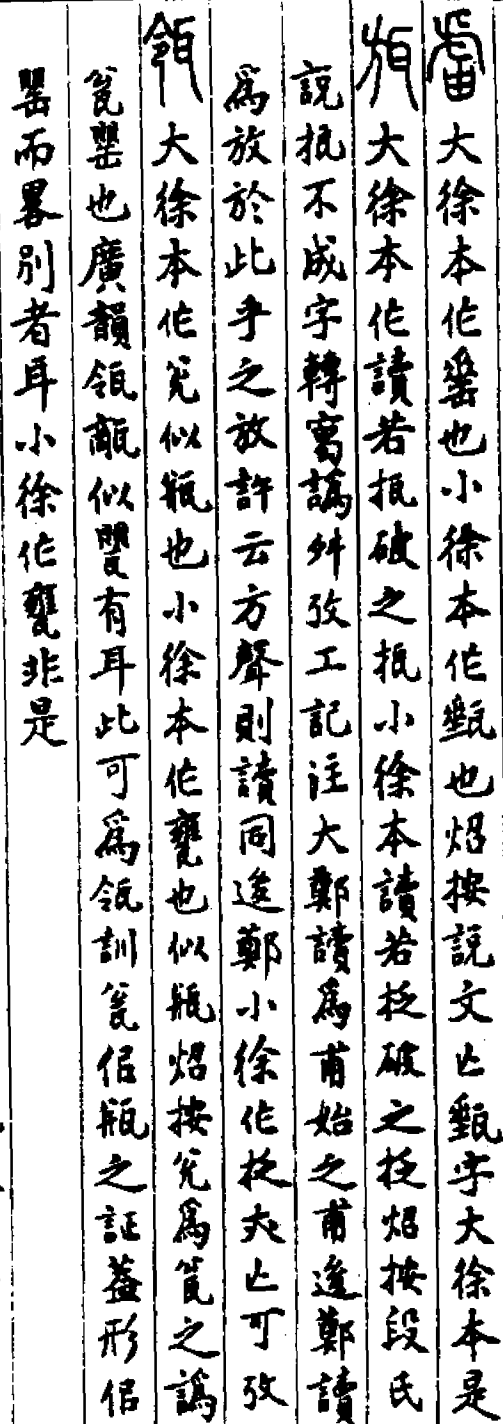 大徐本作也小徐本作甀也炤按說文亡甀字大徐本是
瓬大徐本作讀若破之小徐本讀若破之炤按段氏
説不成字轉寫譌舛攷工記注大鄭讀爲甫始之甫後鄭讀
爲放於此乎之放許云方聲則讀同後鄭小徐作亡可攷
瓴大徐本作似瓶也小徐本作甕也似瓶炤按爲之譌
瓮罌也廣韻瓴似甖有耳此可爲瓴訓瓮佀瓶之証蓋形佀
罌而畧別者耳小徐作甕非是